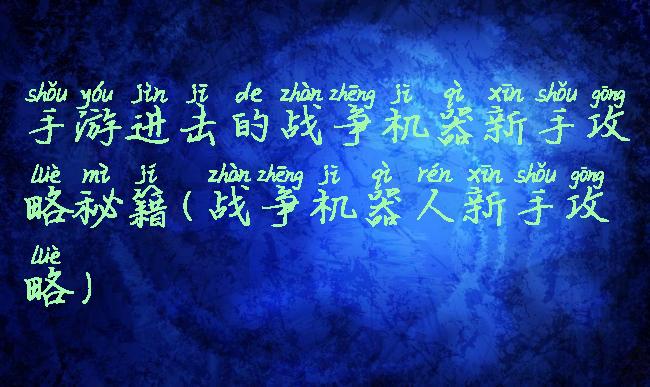 shǒu yóu jìn jī de zhàn zhēng jī qì xīn shǒu gōng
手游进击的战争机器新手攻
lüè mì jí zhàn zhēng jī qì rén xīn shǒu gōng
略秘籍(战争机器人新手攻
lüè
略)